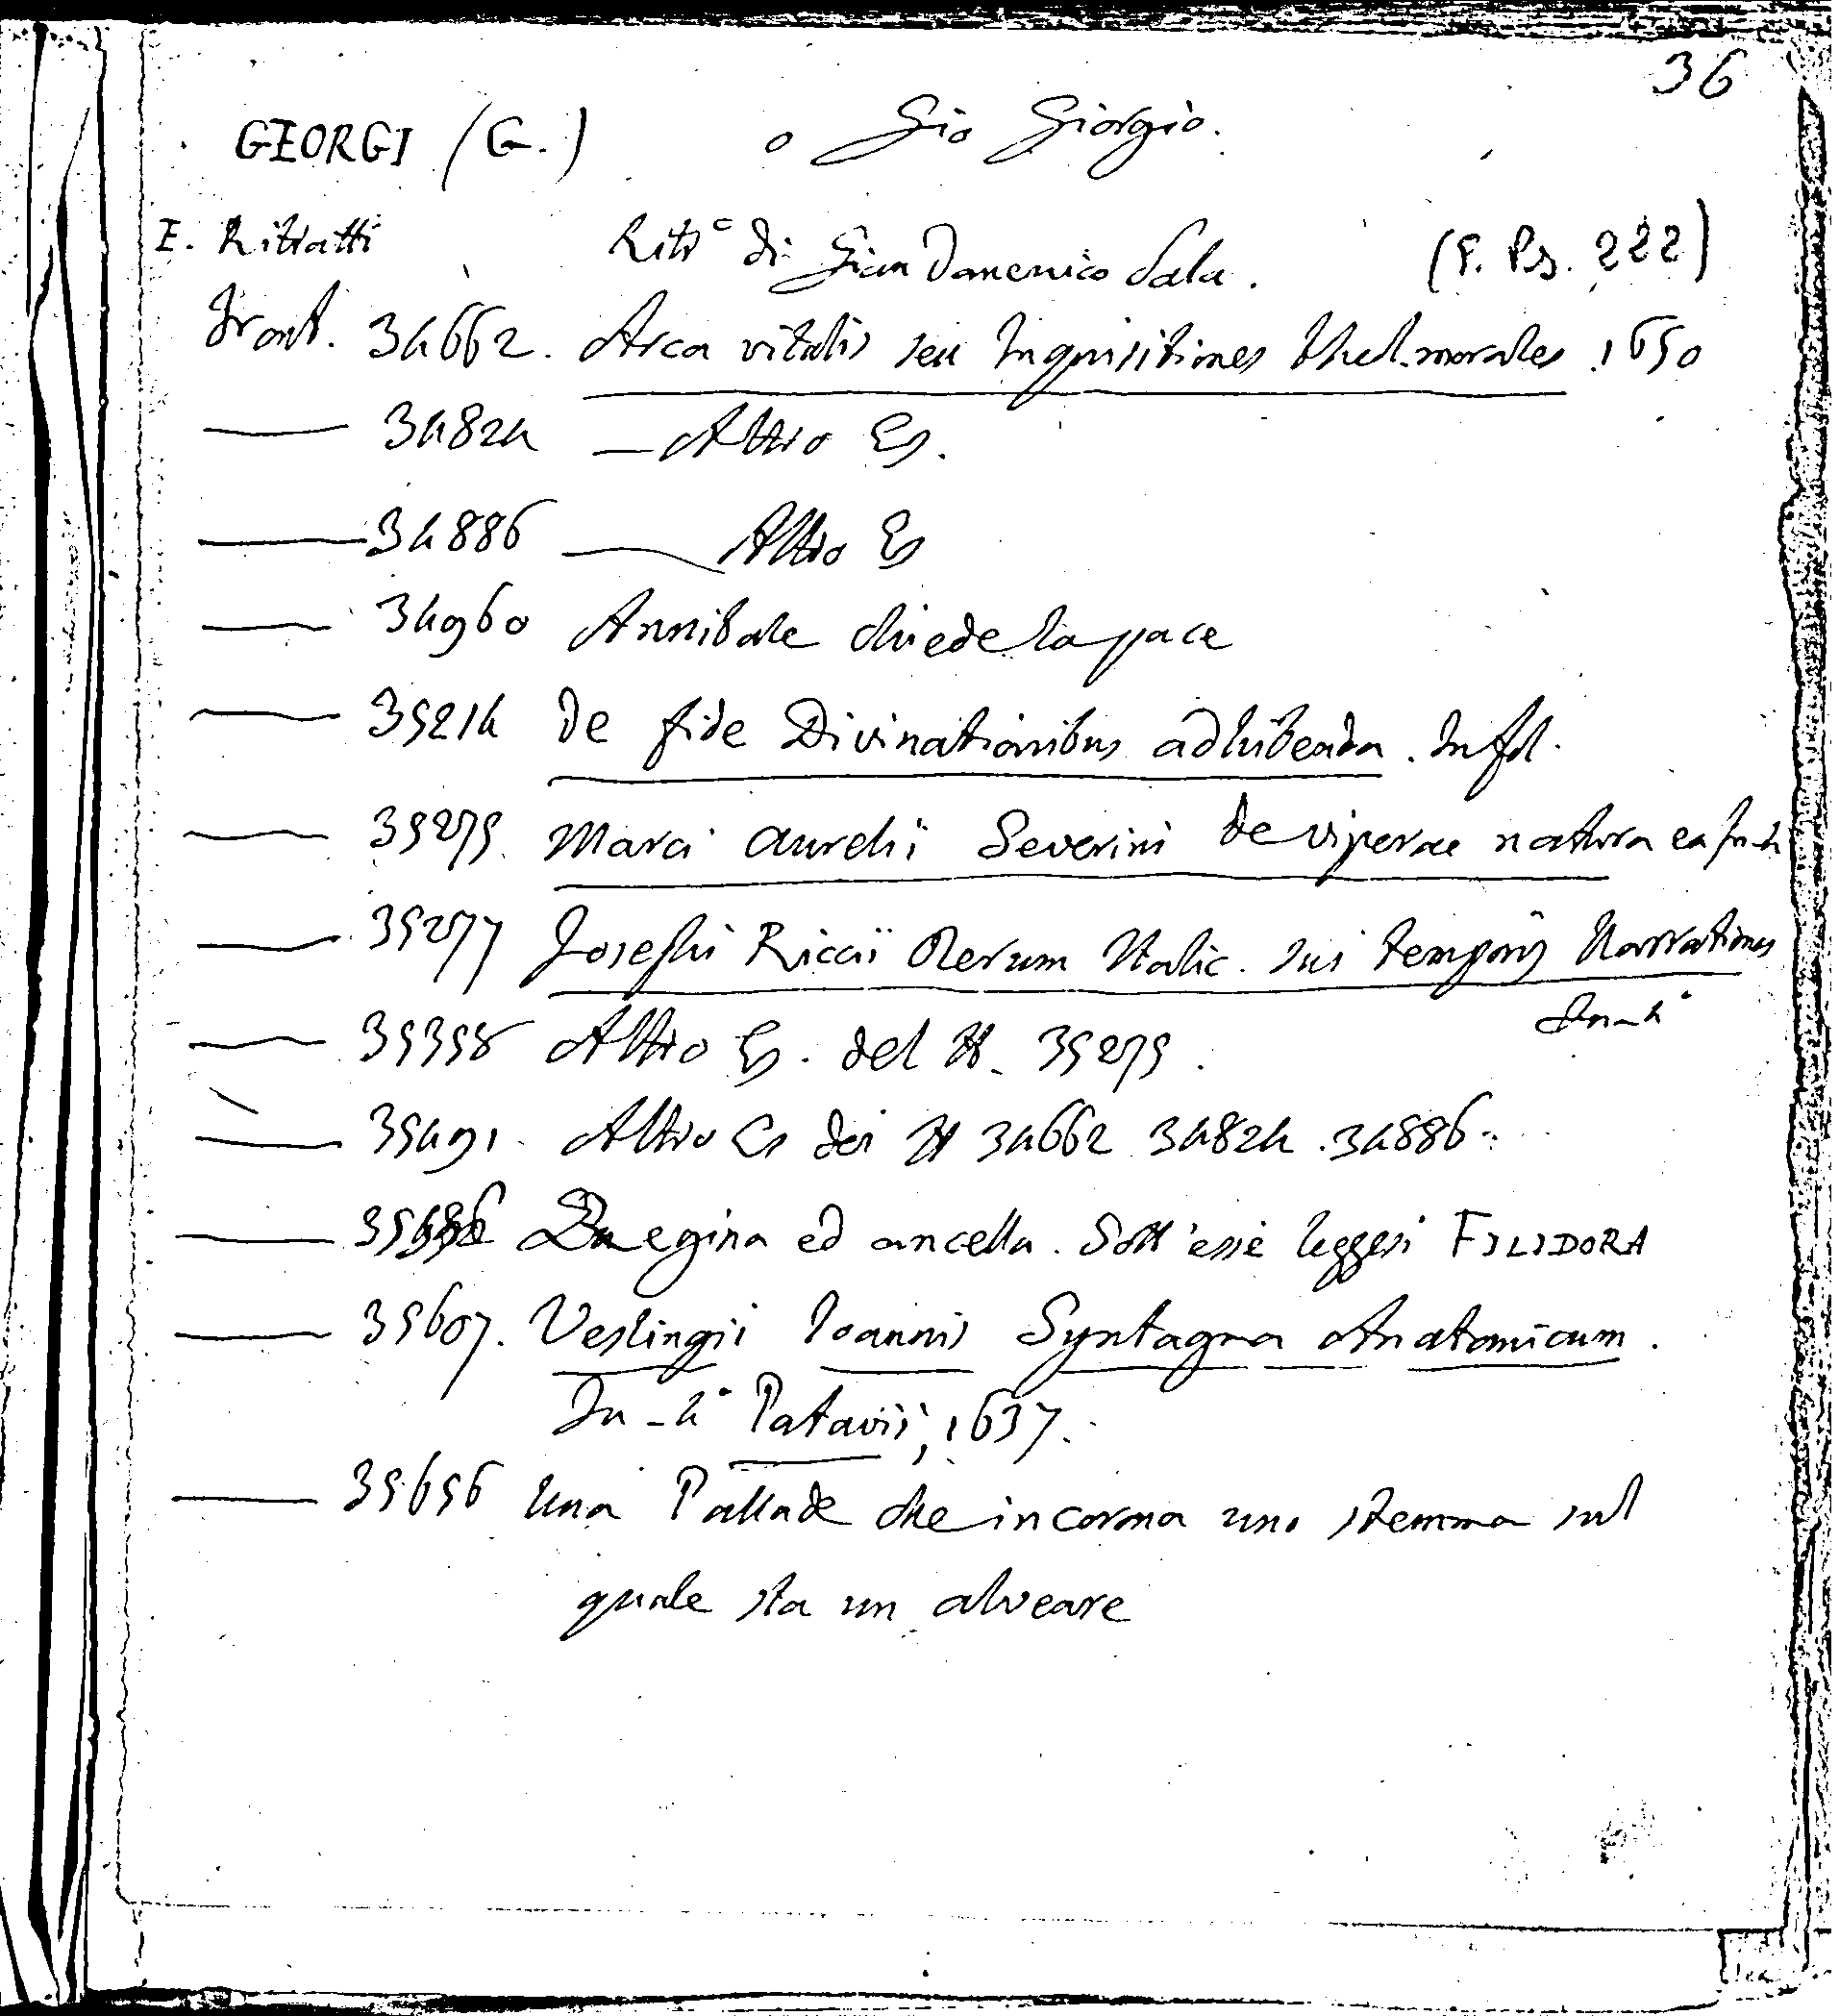 36
GEORGI (G.) o Gio Giorgio.
I. Ritratti Ritr° di Gian Domenico Sala. (P. Ps. 222)
Front. 34662. Arca vitalis seu Inquisitiones thul.morales. 1650
— 34824 — Altro Es.
— 34886 — Altro Es
— 34960 Annibale chiede la pace
— 35214 De fide Divinationibus adhibenda. In fol.
— 35275. Marci Aurelii Severini de viperae natura In-4
— 35277 Josephi Riccii Rerum Italic. sui temporis Narrationes
In-4°
— 35358 Altro Es. del N. 35275.
— 35491. Altro Es dei N 34662 34824. 34886.
— Regina ed ancella. Sott'esse leggesi FILIDORA
— 35607. Veslingii Ioannis Syntagma Anatomicum.
In-4° Patavii, 1637.
— 35656 Una Pallade che incorona uno stemma sul
quale sta un alveare